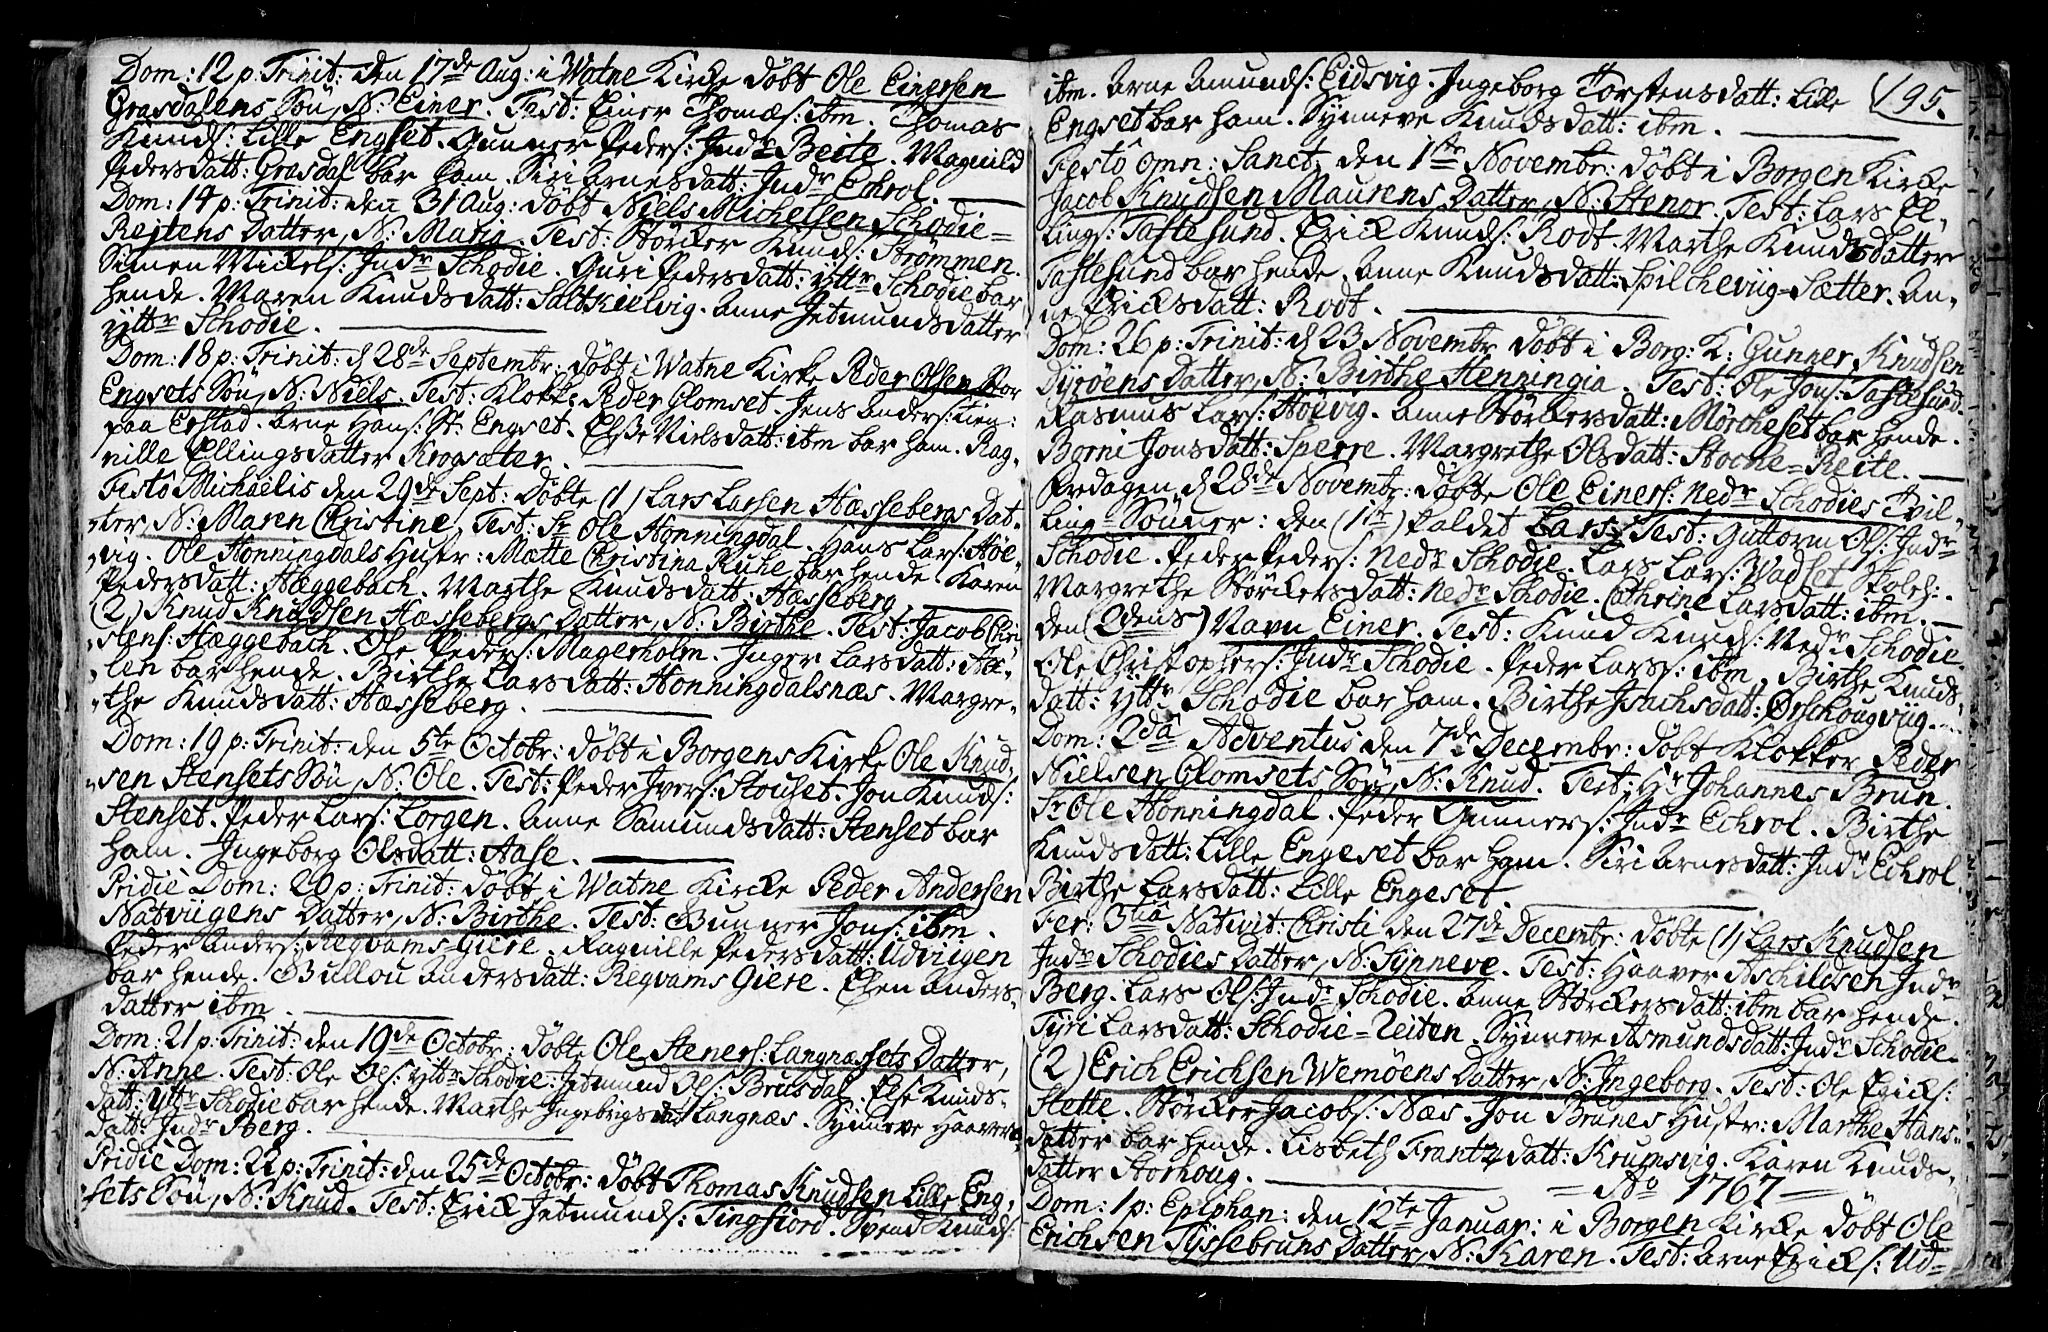 Dom: 12 p: Trinit: den 17de Aug: i Watne Kircke døbt Ole Einersen
Grasdalens Søn, N: Einer. Test: Einer Thomæs: ibm. Thomas
Knuds: Lille Engset. Gunner Peders: Indr Beite. Magnild
Pedersdatt: Grasdal bar ham. Siri Arnesdatt: Indr Echrol.
Dom: 14 p: Trinit: den 31 Aug: døbt Niels Michelsen Schodie=
Rejtens Datter, N: Maria. Test: Størcker Knuds: Strømmen.
Simen Mickels: Indr Schodie. Guri Pedersdatt: Yttr Schodie bar
hende. Maren Knudsdatt: Saltkielvig. Anne Jetmundsdatter
Yttr Schodie.
Dom: 18 p: Trinit: d 28de Septembr: døbt i Watne Kirke Peder Olsen Stor
Engsets Søn, N: Niels. Test: Klokk: Peder Glomset. Jens Anders: tien:
paa Erstad. Arne Hans: St: Engset. Else Nielsdatt: ibm bar ham. Rag-
nille Ellingsdatter Krogsæter.
Festo Michaëlis den 29de Sept: døbte (1) Lars Larsen Hæssebergs Dat-
ter, N: Maren Christine. Test: Sr Ole Honningdal. Hans Lars: Høe-
vig. Ole Honningdals Hustr: Mætte Christina Ruhe bar hende. Karen
Pedersdatt: Hæggebach. Marthe Knudsdatt: Hæsseberg.
(2) Knud Knudsen Hæssebergs Datter, N: Birthe. Test: Jacob Chri-
stens: Hæggebach. Ole Peders: Magerholm. Inger Larsdatt: Aa-
len bar hende. Birthe Larsdatt: Honningdalsnæs. Margre-
the Knudsdatt: Hæsseberg.
Dom: 19 p: Trinit: den 5te Octobr: døbt i Borgens Kirke Ole Knud-
sen Stensets Søn, N: Ole. Test: Peder Ivers: Stouset. Jon Knuds:
Stenset. Peder Lars: Lorgen. Anne Samundsdatt: Stenset bar
ham. Ingeborg Olsdatt: Aase.
Pridie Dom: 20 p: Trinit: døbt i Watne Kircke Peder Andersen
Natviigens Datter, N: Birthe. Test: Gunner Jons: ibm.
Peder Anders: Reqvams=Giere. Ragnille Pedersdatt: Udviigen
bar hende. Gullou Andersdatt: Reqvams Giere. Elen Anders-
datter ibm.
Dom: 21 p: Trinit: den 19de Octobr: døbte Ole Steners: Langnæssets Datter,
N: Anne. Test: Ole Ols: Yttr Schodie. Jetmund Ols: Brusdal. Else Knuds-
datt: Yttr Schodie bar hende. Marthe Ingebrigtsdatt Langnæs. Synneve Haavers
datt: Indr Berg.
Pridie Dom: 22 p: Trinit: den 25de Octobr: døbt Thomas Knudsen Lille Eng-
sets Søn, N: Knud. Test: Erick Jetmunds: Tingfiord. Svend Knuds:
ibm. Arne Amunds: Eidsvig. Ingeborg Torstensdatt: Lille
195.
Engset bar ham. Synneve Knudsdatt: ibm.
Festo Omn: Sanct: den 1ste Novembr: døbt i Borgen Kircke
Jacob Knudsen Maurens Datter, N: Stenor. Test: Lars El-
lings: Taftesund. Erick Knuds: Rodt. Marthe Knudsdatter
Taftesund bar hende. Anne Knudsdatt: Spilcheviig=Sætter. An-
ne Ericksdatt: Rodt.
Dom: 26 p: Trinit: d 23 Novembr døbt i Borg: K: Gunner Knudsen
Dyrøens Datter, N: Birthe Henningia. Test: Ole Jons: Taftesund.
Rasmus Lars: Høevig. Anne Størkersdatt: Mørcheset bar hende.
Borni Jonsdatt: Sperre. Margrethe Olsdatt: Stoche=Reite.
Fredagen d 28de Novembr: døbte Ole Einers: Nedr Schodies Tvil-
ling=Sønner: den (1ste) kaldet Lars; Test: Guttorm Ols: Indr
Schodie. Peder Peders: Nedr Schodie. Lars Lars: Wadset Skoleh:
Margrethe Størkersdatt: Nedr Schodie. Cathrine Larsdatt: ibm.
den (2dens) Navn Einer. Test: Knud Knuds: Nedr Schodie.
Ole Christophers: Indr Schodie. Peder Larss: ibm. Birthe Knuds-
datt: Yttr Schodie bar ham. Birthe Isachsdatt: Ørschougviig.
Dom: 2da Adventus den 7de Decembr: døbt Klokker Peder
Nielsen Glomsets Søn, N: Knud. Test: Hr Johannes Brun.
Sr Ole Honningdal. Peder Gunners: Indr Echrol. Birthe
Knudsdatt: Lille Engeset bar ham. Siri Arnesdatt: Indr Echrol.
Birthe Larsdatt: Lille Engeset.
Fer: 3tia Nativit: Christi den 27de Decembr: døbte (1) Lars Knudsen
Indr Schodies Datter, N: Synneve. Test: Haaver Aschildsen Indr
Berg. Lars Ols: Indr Schodie. Anne Størckersdatt: ibm bar hende.
Tyri Larsdatt: Schodie=Reiten. Synneve Asmundsdatt: Indr Schodie.
(2) Erich Erichsen Wemøens Datter, N: Ingeborg. Test: Ole Ericks:
Stette. Størcker Jacobs: Næs. Jon Brunes Hustr: Marthe Hans-
datter bar hende. Lisbeth Frantzdatt: Krumsvig. Karen Knuds-
datter Storhoug.
= Ao 1767
Dom: 1 p: Epiphan: den 12te Januar: i Borgen Kircke døbt Ole
Erichsen Tyssebruns Datter, N: Karen. Test: Arne Ericks: Ud=